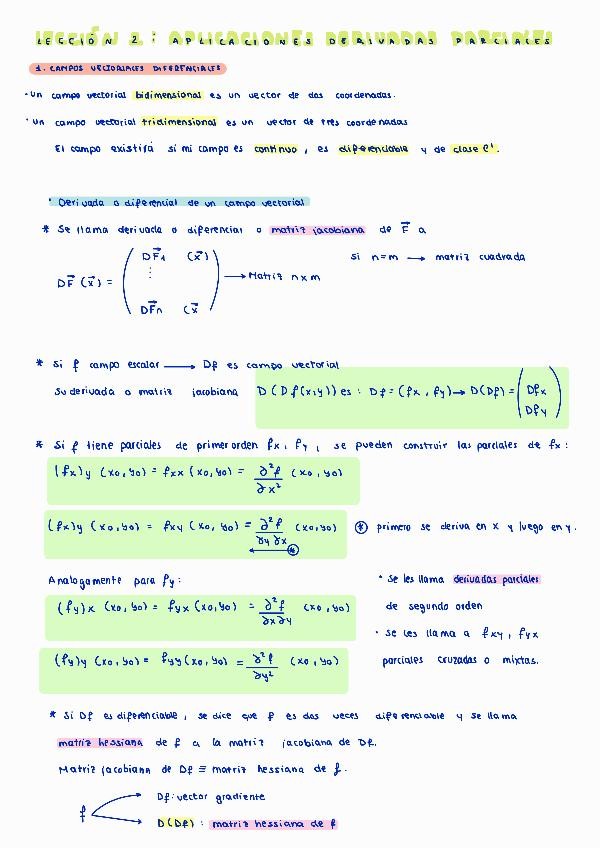 LECCIÓN 2: APLICACIONES DERIVADAS PARCIALES
1. CAMPOS VECTORIALES DIFERENCIALES
· Un campo vectorial bidimensional es un vector de dos coordenadas.
· Un campo vectorial tridimensional es un vector de tres coordenadas
El campo existirá si mi campo es continuo, es diferenciable y de clase C¹.
· Derivada o diferencial de un campo vectorial
* Se llama derivada o diferencial o matriz jacobiana de F⃗ a
DF⃗ (x⃗) = ( DF⃗1 (x⃗) ⋮ DF⃗n (x⃗ ) → Matriz n x m
si n=m → matriz cuadrada
* Si f campo escalar → Df es campo vectorial
Su derivada o matriz jacobiana D(Df(x,y)) es: Df = (fx, fy) → D(Df) = ( Dfx Dfy )
* Si f tiene parciales de primer orden fx, fy, se pueden construir las parciales de fx:
(fx)y (x0,y0) = fxx (x0,y0) = ∂²f/∂x² (x0,y0)
(fx)y (x0,y0) = fxy (x0,y0) = ∂²f/∂y∂x (x0,y0) ⊛ primero se deriva en x y luego en y.
⊛
Analogamente para fy:
(fy)x (x0,y0) = fyx (x0,y0) = ∂²f/∂x∂y (x0,y0)
(fy)y (x0,y0) = fyy (x0,y0) = ∂²f/∂y² (x0,y0)
· Se les llama derivadas parciales
de segundo orden
· se les llama a fxy, fyx
parciales cruzadas o mixtas.
* Si Df es diferenciable, se dice que f es dos veces diferenciable y se llama
matriz hessiana de f a la matriz jacobiana de Df.
Matriz jacobiana de Df ≡ matriz hessiana de f.
f
Df: vector gradiente
D(Df): matriz hessiana de f